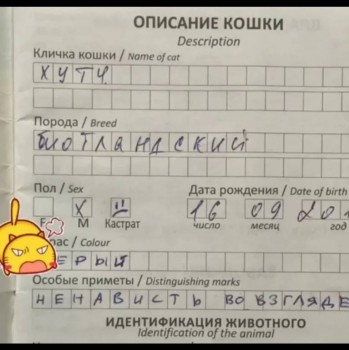 ОПИСАНИЕ КОШКИ
Description
Кличка кошки / Name of cat
ХУТЧ
Порода / Breed
биотландский
Пол / Sex
Дата рождения / Date of birth
F X M Кастрат
16 09 20
число месяц год
рас / Colour
ЕРЫЙ
Особые приметы / Distinguishing marks
НЕНАВИСТЬ ВО ВЗГЛЯДЕ
ИДЕНТИФИКАЦИЯ ЖИВОТНОГО
Identification of the animal